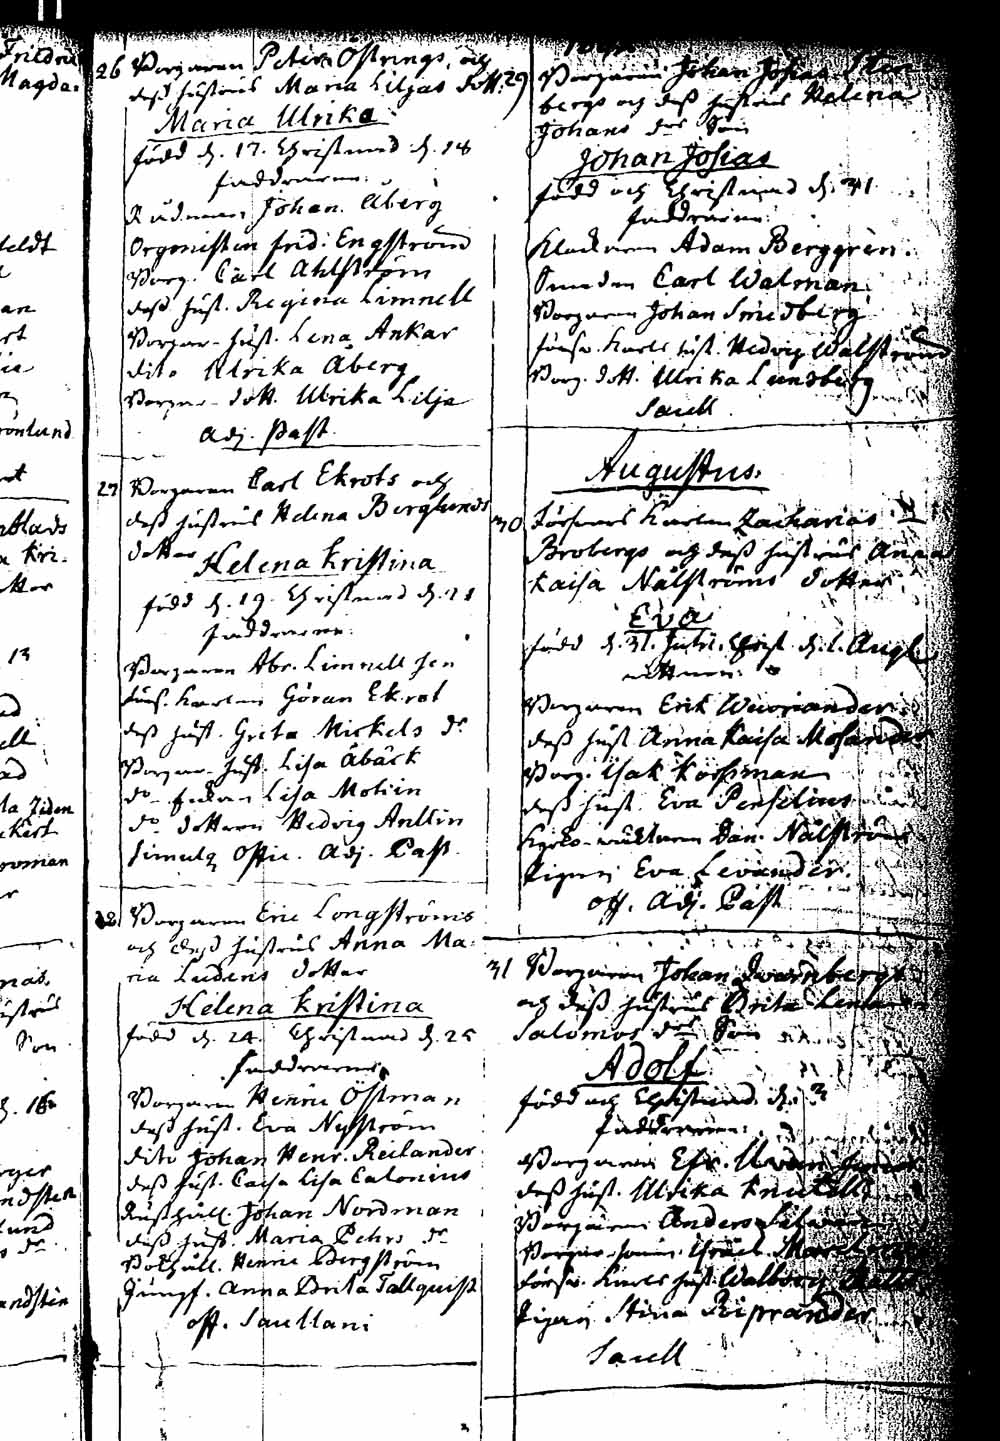 Fridric
Magda:
feldt
an
rönlund
nblads
a Kri-
otter
13
la Ziden
ekert
orman
mas.
Son
d. 16
rger
ndsten
lund
s dr
andstén
26 Borgaren Peter Östrings, och
dess hustrus Maria Liljas Dott:
Maria Ulrika
född d. 17. Christnad d. 18
faddrarne:
Rådman Johan Åberg
Orgenisten frid: Engström
Borg. Carl Ahlström
dess hust. Regina Limnell
Borgar-hust. Lena Ankar
dito Ulrika Åberg
Borgar-dott. Ulrika Lilja
Adj. Past.
27 Borgaren Carl Ekrots och
dess hustrus Helena Berglunds
dotter
Helena Kristina
född d. 19. Christnad d. 21
faddrarne:
Borgaren Abr. Limnell Sen
förs. karlen Göran Ekrot
dess hust. Greta Mickels dr
Borgar-hust. Lisa Åbäck
do Enkan Lisa Molin
do dottern Hedvig Antlin
simulq Offic. Adj. Past.
28 Borgaren Eric Longströms
och dess hustrus Anna Ma-
ria Ludens dotter
Helena Kristina
född d. 24. Christnad d. 25
faddrarne
Borgaren Henric Östman
dess hust. Eva Nyström
dito Johan Henr. Reilander
dess hust. Caisa Lisa Calonius
Rusthåll. Johan Nordman
dess hust. Maria Pehrs dr
Bolhåll. Henric Bergström
Jungf. Anna Brita Tallquist
off. Saullani
29 Borgaren Johan Josias
bergs och dess hustrus Helena
Johans drs Son
Johan Josias
född och Christnad d. 31
faddrarne:
Klockaren Adam Berggren.
Smeden Carl Walman
Borgaren Johan Smedberg
försv. karls hust. Hedvig Walström
Borg. dott. Ulrika Lundberg
Saull
Augustus.
30 Försvars Karlen Zacharias
Brobergs och dess hustrus Anna
Kaisa Nälströms dotter
Eva
född d. 31. Julii. Christ. d. 1. Aug.
vittnen:
Borgaren Erik Weurander
dess hust Anna Kaisa Molander
Borg. Isak Korsman
dess hust. Eva Penselius
Kyrko-väktaren Dan. Nälström
Pigan Eva Levander.
off. Adj. Past
31 Borgaren Johan Qvarnbergs
och dess hustrus Brita Lena
Salomos drs Son
Adolf
född och Christnad d. 3
faddrarne:
Borgaren Efr. Uvan Junior
dess hust. Ulrika Knutell
Borgaren Anders
Borgar-Son Israel
försv. karls hust Walborg
Pigan Stina Riprander
Saull